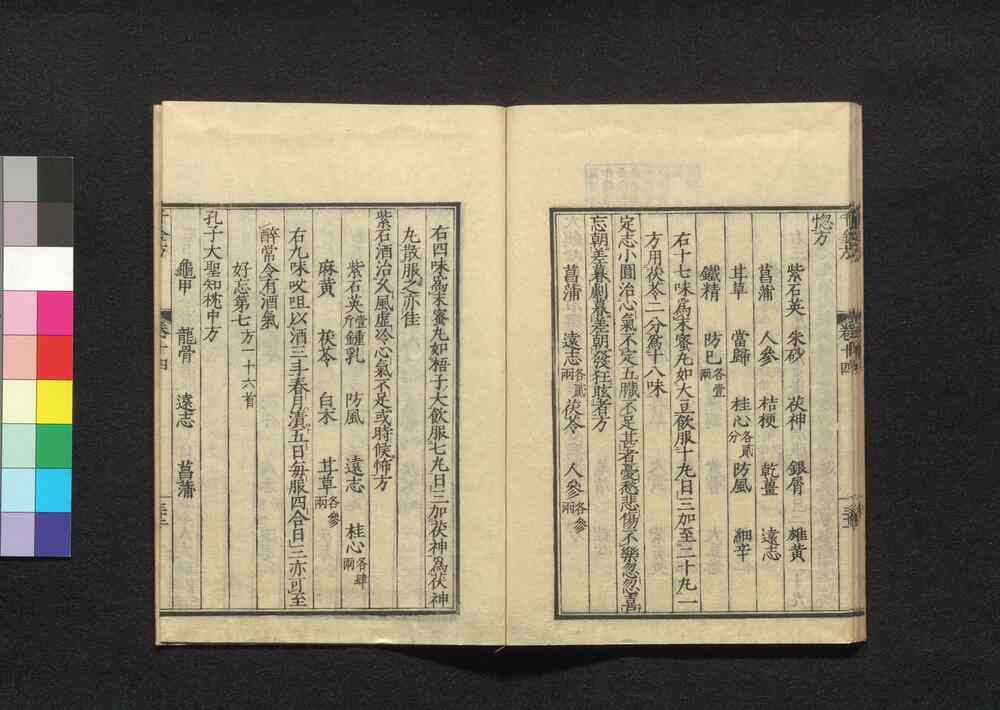 惚方
紫石英 朱砂 茯神 銀屑 雄黄
菖蒲 人參 桔梗 乾薑 遠志
甘草 當歸 桂心各貳分 防風 細辛
鐵精 防已各壹兩
右十七味爲末蜜丸如大豆飲服十丸日三加至二十丸一
方用茯苓二分爲十八味
定志小圓治心氣不定五臟不足甚者憂愁悲傷不樂忽忽喜
忘朝差暮劇暮差朝發狂眩者方
菖蒲 遠志各貳兩 茯苓 人參各參兩
千金方
卷十四
右四味爲末蜜丸如梧子大飲服七丸日三加茯神爲茯神
丸散服之亦佳
紫石酒治久風虛冷心氣不足或時候怖方
紫石英壹斤 鍾乳 防風 遠志 桂心各肆兩
麻黄 茯苓 白朮 甘草各參兩
右九味㕮咀以酒三斗春月漬五日每服四合日三亦可至
醉常令有酒氣
好忘第七方一十六首
孔子大聖知枕中方
龜甲 龍骨 遠志 菖蒲
千金方
卷十四